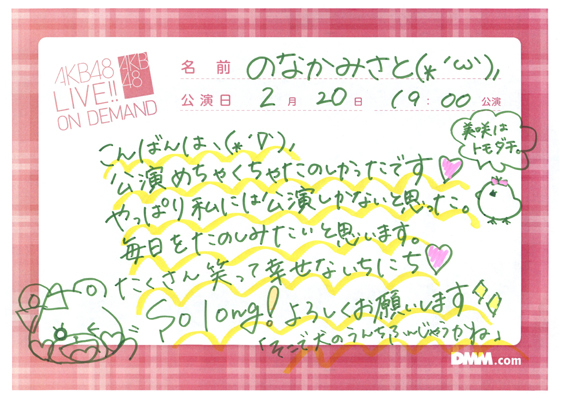 AKB48
LIVE!!
ON DEMAND
AKB
48
名前 のなかみさと(*´ω`)ﾉ
公演日 2月20日 19:00公演
美咲は
トモダチ。
こんばんは、(*´∇`)ﾉ
公演めちゃくちゃたのしかったです
やっぱり私には公演しかないと思った。
毎日をたのしみたいと思います。
たくさん笑って幸せないちにち
So long! よろしくお願いします
DMM.com